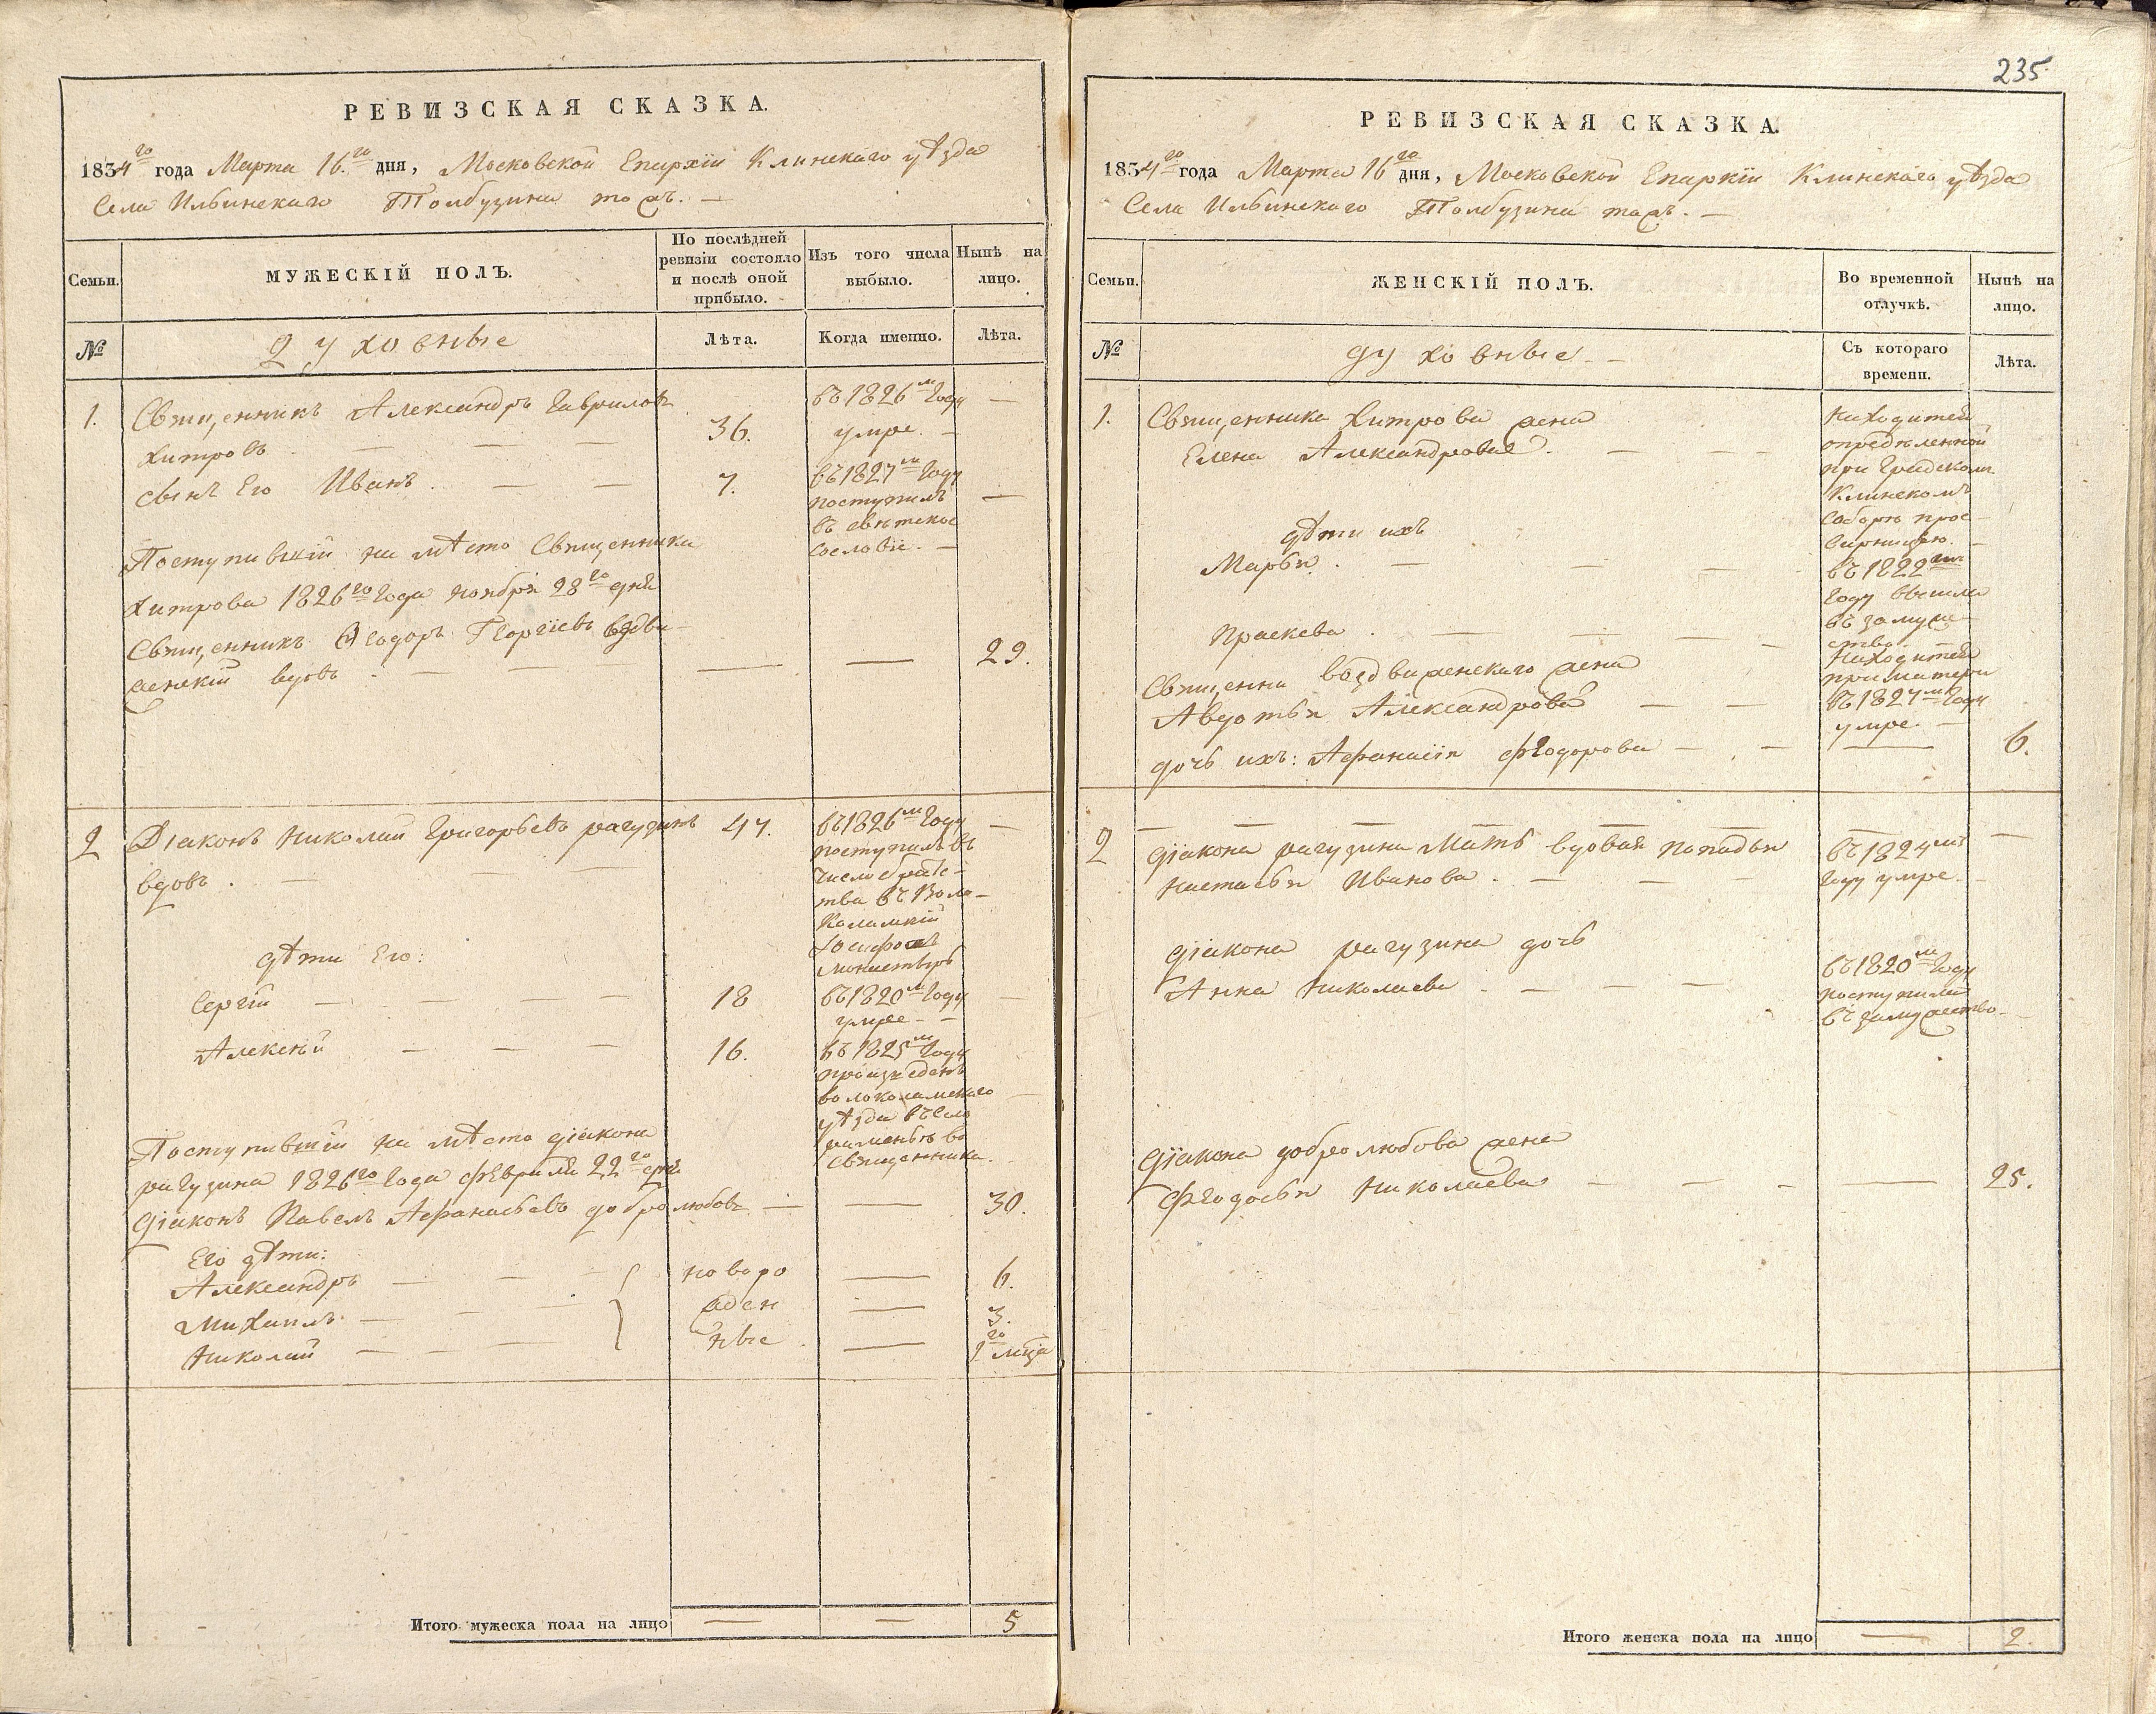 РЕВИЗСКАЯ СКАЗКА.
1834го года Марта 16.го дня, Московской Епархіи Клинскаго уѣзда
Села Ильинскаго Толбузина тожъ. —
Семьи.
МУЖЕСКІЙ ПОЛЪ.
По послѣдней
ревизіи состояло
и послѣ оной
прибыло.
Изъ того числа
выбыло.
Нынѣ на
лицо.
№
Духовные
Лѣта.
Когда именно.
Лѣта.
1.
Священникъ Александръ Гавриловъ
Хитровъ
36.
въ 1826м Году
умре. —
сынъ Его Иванъ.
7.
въ 1827м Году
поступилъ
въ свѣтское
сословіе. —
Поступившій на мѣсто Священника
Хитрова 1826го Года ноября 28го дня
Священникъ Ѳеодоръ Георгіевъ Воздви-
женскій вдовъ.
29.
2
Діаконъ Николай Григорьевъ рагузинъ
вдовъ.
47.
въ 1826м Году
поступилъ въ
число братс-
тва въ Воло-
коламскій
Іосифовъ
монастырь
дѣти Его:
Сергій
18
въ 1820м Году
умре —
Алексѣй
16.
въ 1825м Году
произведенъ
волоколамскаго
уѣзда въ Село
раменье во
Священника.
Поступившій на мѣсто діакона
рагузина 1826го Года февраля 22го дня
діаконъ Павелъ Афанасьевъ добролюбовъ —
30.
Его дѣти:
Александръ
Михаилъ.
Николай
новоро
жден
ные
6.
3.
1го мца
Итого мужеска пола на лицо
5
235.
РЕВИЗСКАЯ СКАЗКА.
1834го года Марта 16го дня, Московской Епархіи Клинскаго уѣзда
Села Ильинскаго Толбузина тожъ. —
Семьи.
ЖЕНСКІЙ ПОЛЪ.
Во временной
отлучкѣ.
Нынѣ на
лицо.
№
духовные. —
Съ котораго
времени.
Лѣта.
1.
Священника Хитрова жена
Елена Александрова.
Находится
опредѣленной
при Градскомъ
Клинскомъ
Соборѣ прос-
вирницею. —
дѣти ихъ
Марья.
въ 1822м
Году вышла
въ замуже-
ство.
Праскева.
Находится
при матери
Священни Воздвиженскаго жена
Авдотья Александрова
въ 1827м Году
умре. —
дочь ихъ: Афанасія Феодорова
6.
2
діакона рагузина Мать вдовая попадья
Настасья Иванова.
въ 1824м
Году умре.
діакона рагузина дочь
Анна Николаева
въ 1820м Году
поступила
въ замужество.
діакона добролюбова жена
Феодосья Николаева
25.
Итого женска пола на лицо
2.